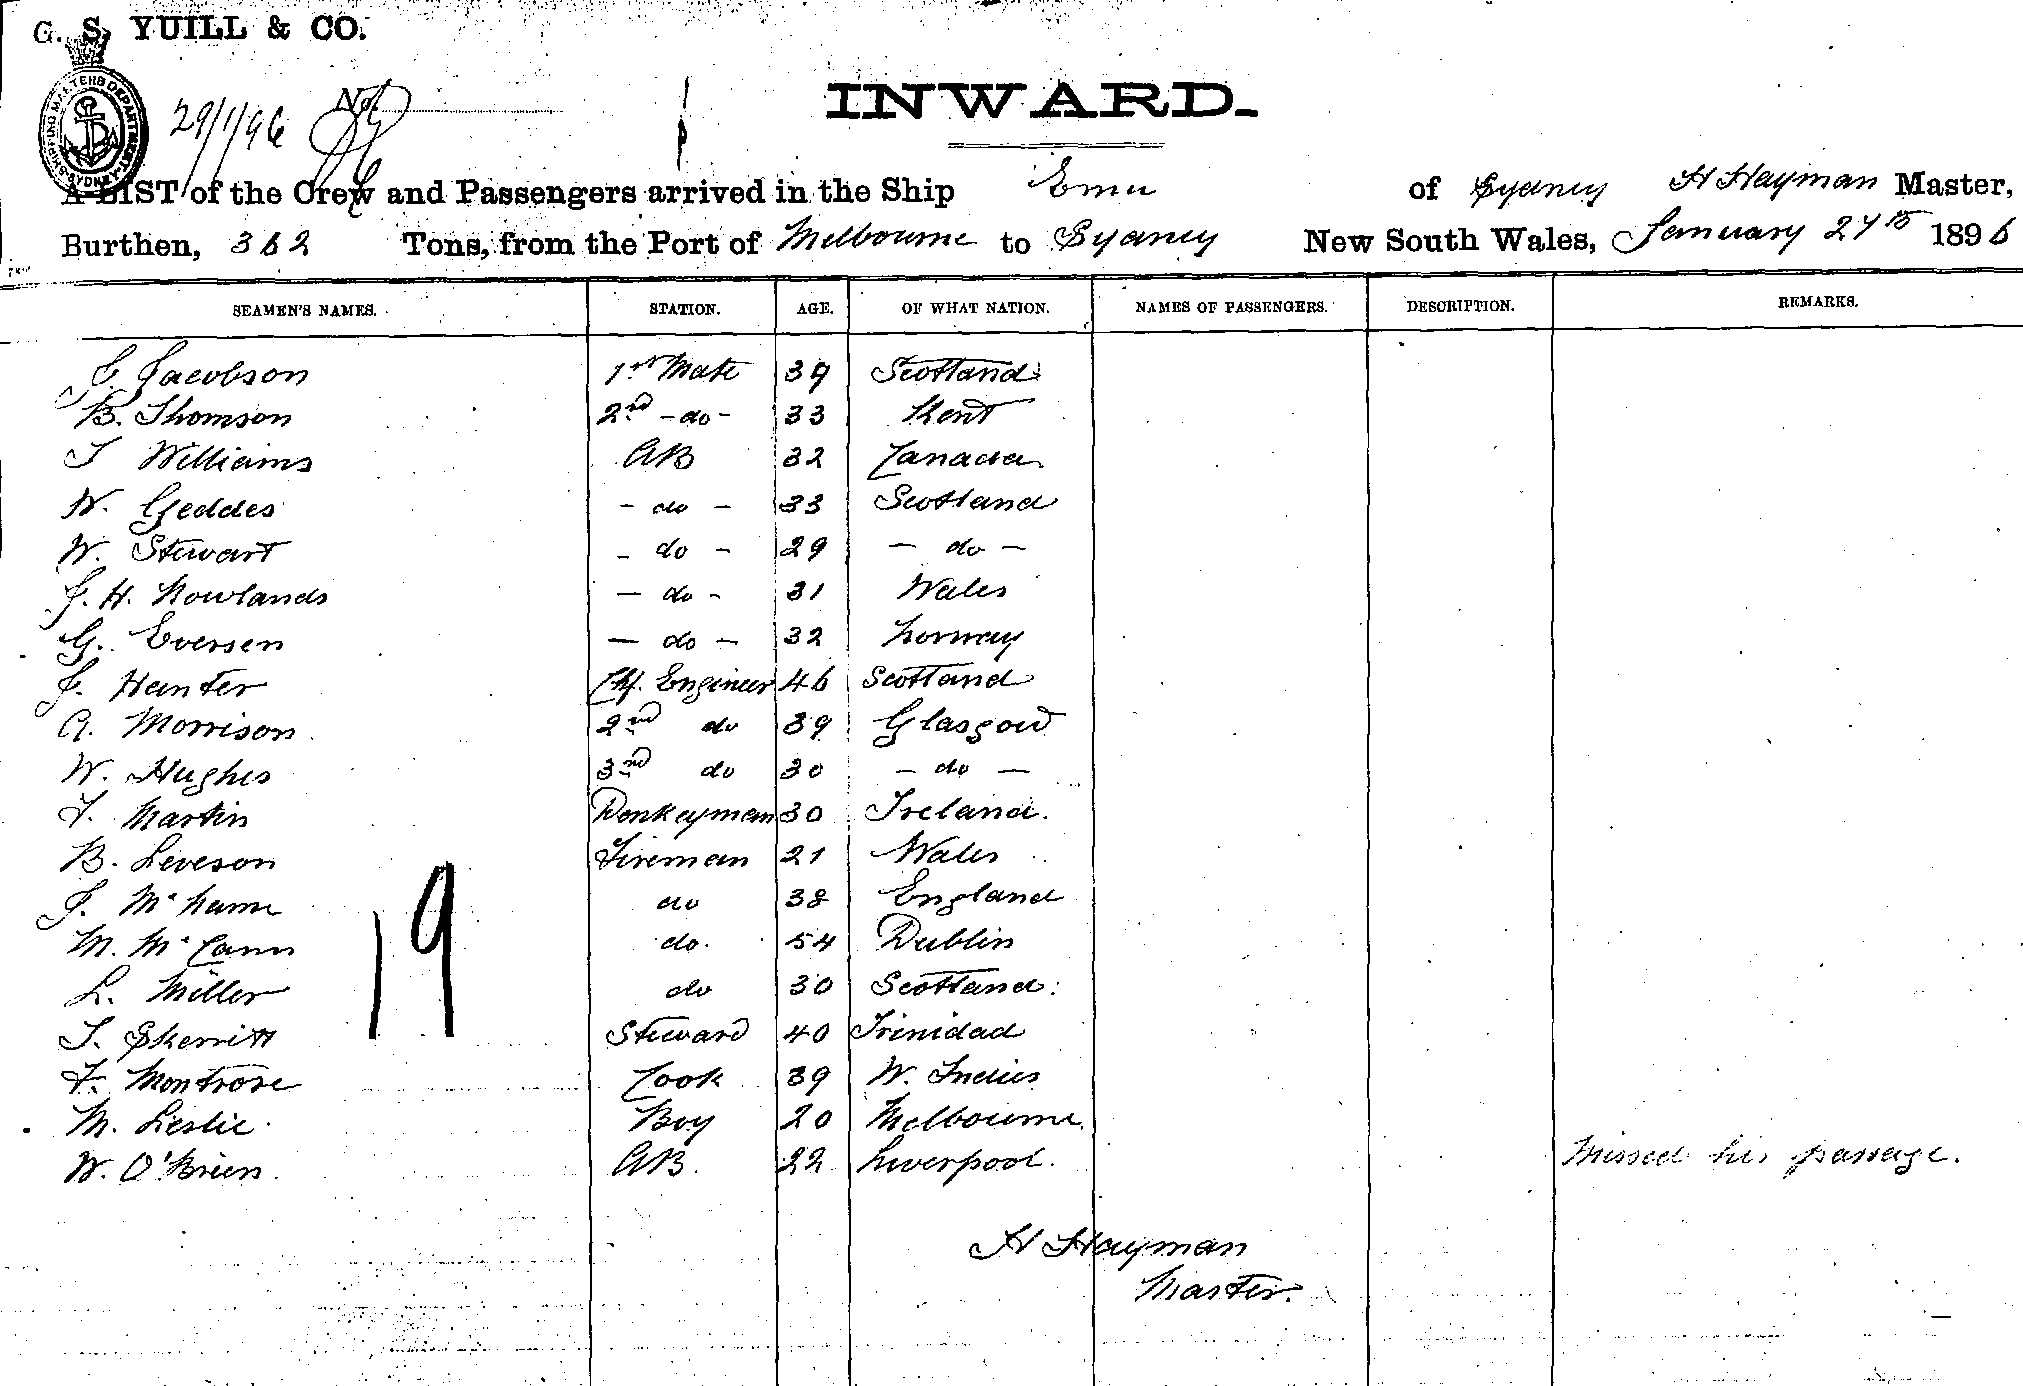 G. S. YUILL & CO.
SHIPPING MASTERS DEPARTMENT SYDNEY
29/1/96 No.
INWARD.
A LIST of the Crew and Passengers arrived in the Ship Emu of Sydney H Hayman Master,
Burthen, 362 Tons, from the Port of Melbourne to Sydney New South Wales, January 27th 1896
SEAMEN'S NAMES. STATION. AGE. OF WHAT NATION. NAMES OF PASSENGERS. DESCRIPTION. REMARKS.
J. Jacobson 1st Mate 39 Scotland
B. Thomson 2nd - do - 33 Kent
T Williams AB 32 Canada
W. Geddes - do - 33 Scotland
W. Stewart - do - 29 - do -
J. H. Rowlands - do - 31 Wales
G. Eversen - do - 32 Norway
J. Hunter Chf. Engineer 46 Scotland
A. Morrison 2nd do 39 Glasgow
W. Hughes 3rd do 30 - do -
F. Martin Donkeyman 30 Ireland.
B. Leveson Fireman 21 Wales
J. do 38 England
M. McCann do. 54 Dublin
L. Miller do 30 Scotland
T. Skerritt Steward 40 Trinidad
F. Montrose Cook 39 W. Indies
M. Leslie Boy 20 Melbourne
W. O'Brien AB. 22 Liverpool. Missed his passage.
19
H Hayman
Master.